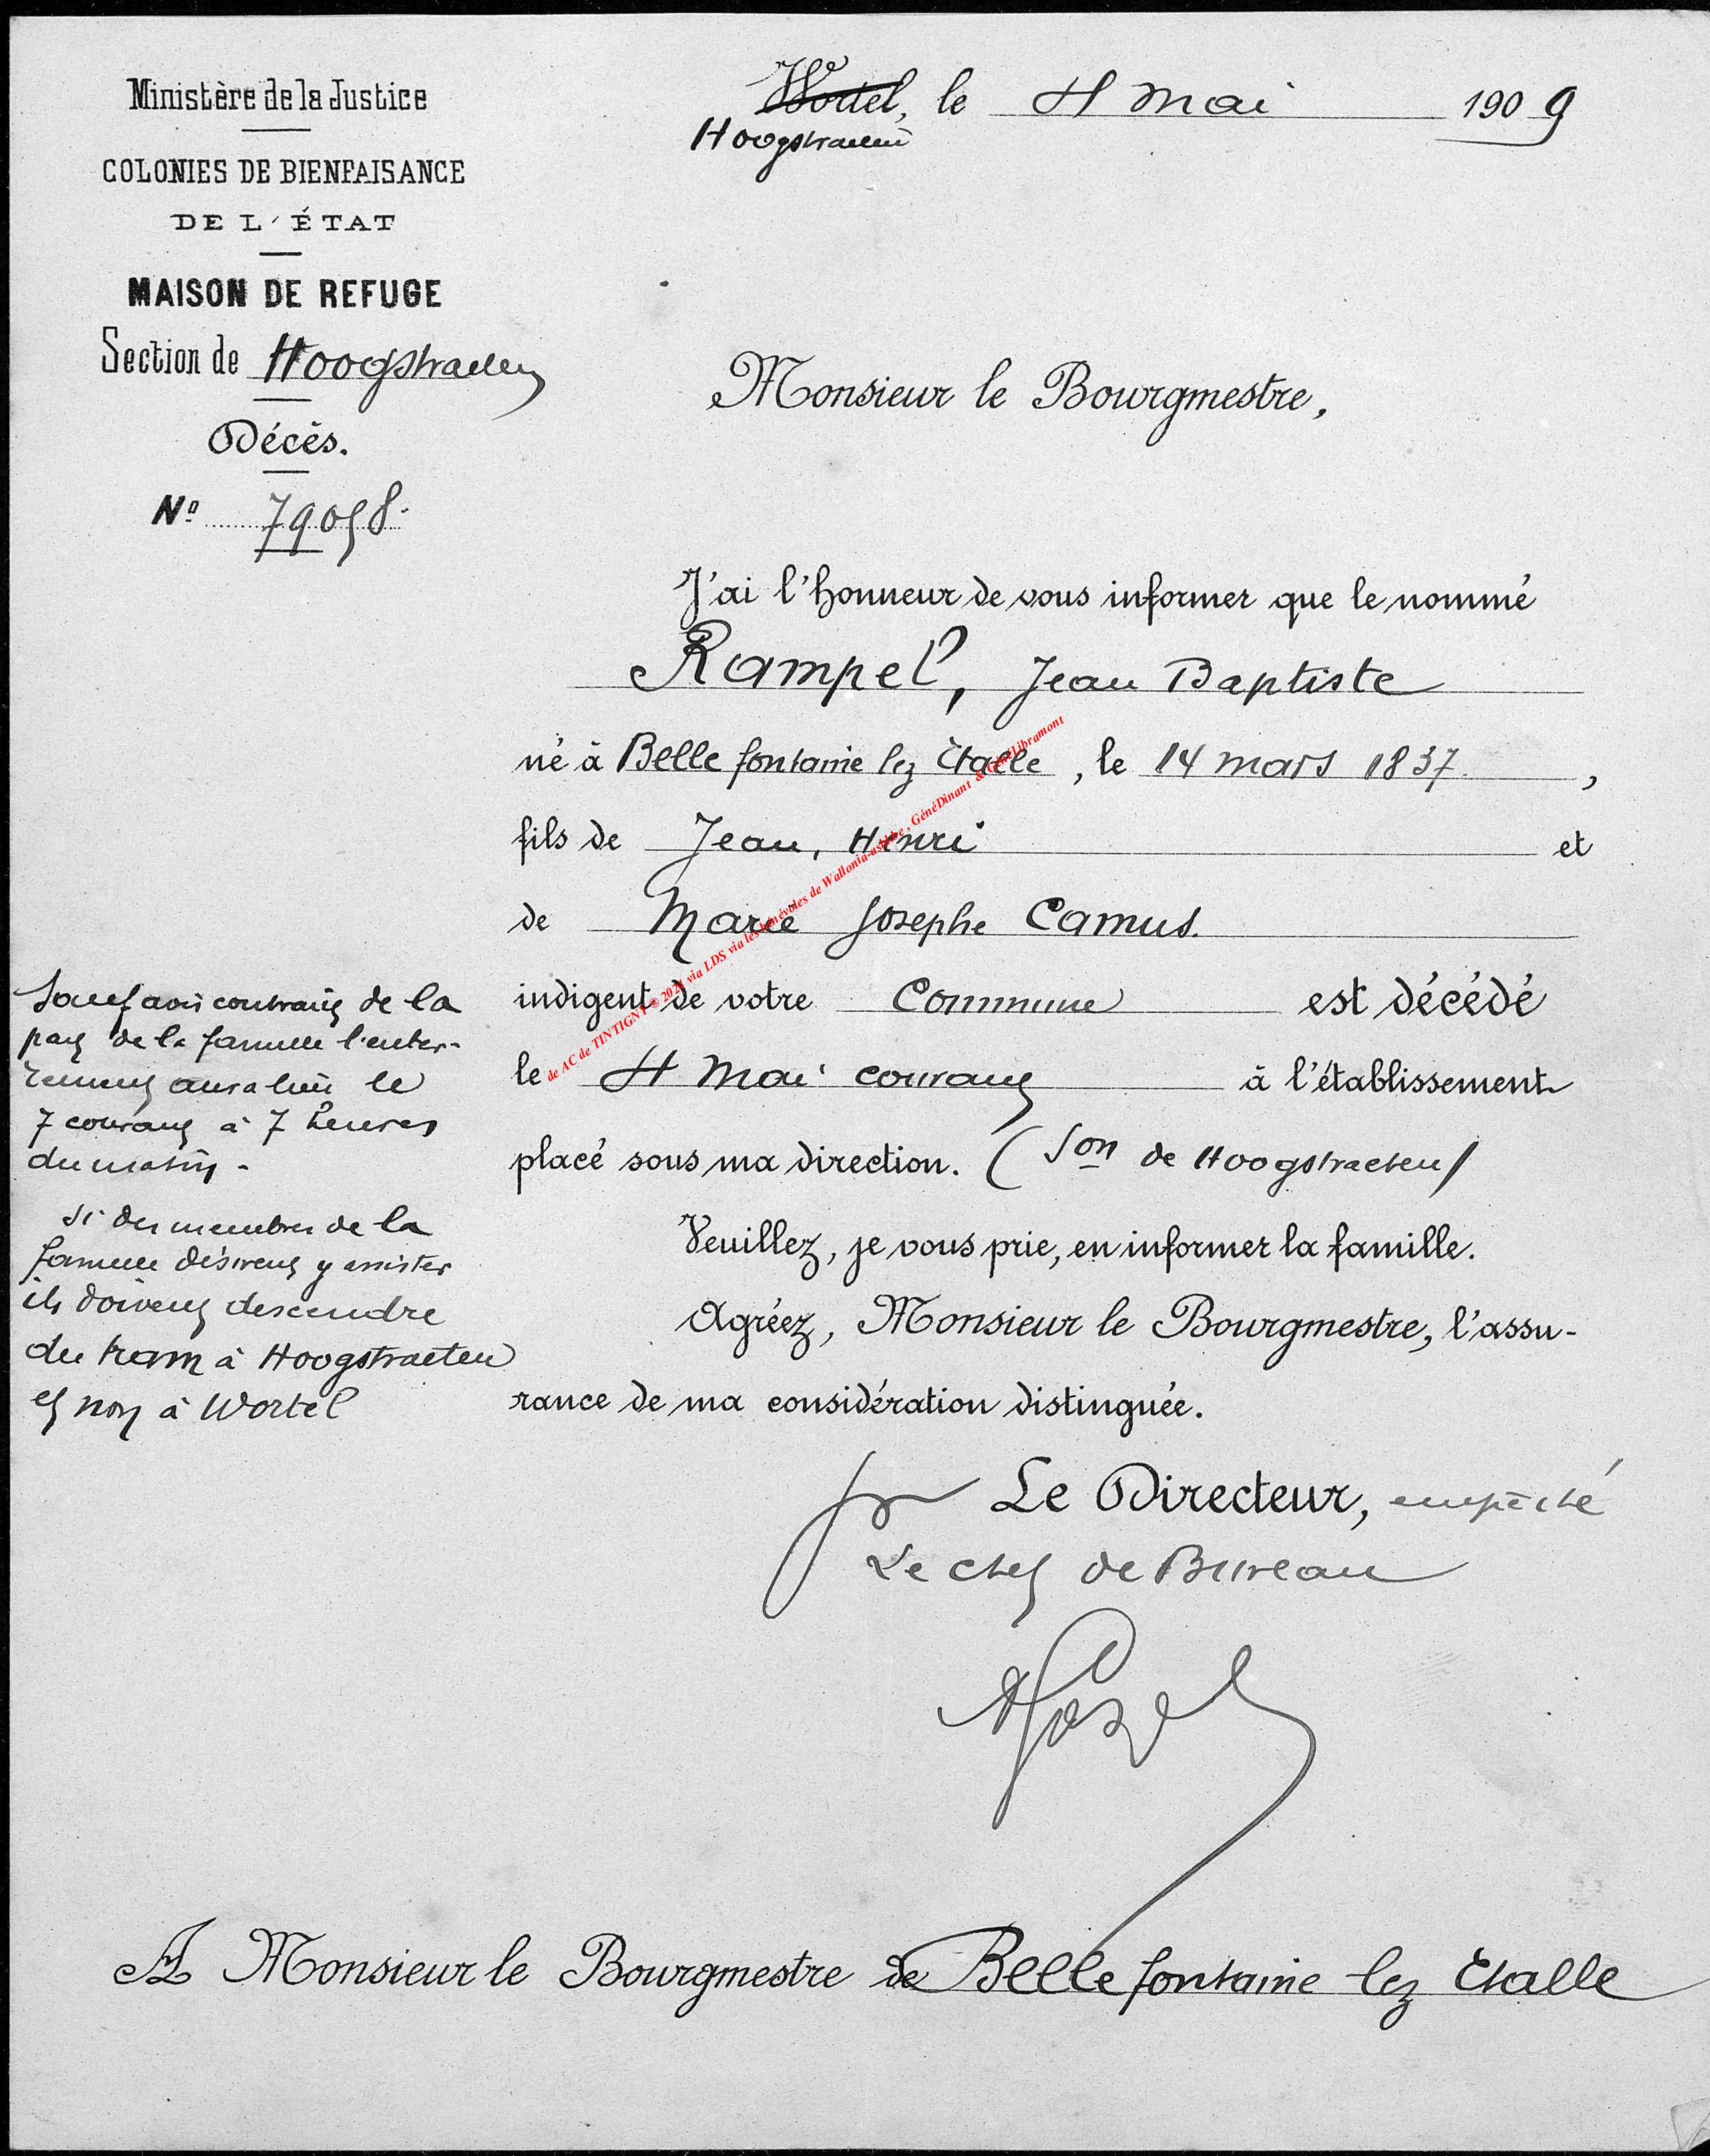 Ministère de la Justice
COLONIES DE BIENFAISANCE
DE L'ÉTAT
MAISON DE REFUGE
Section de Hoogstraeten
Décès.
Nº 79058
Wortel, le 4 mai 1909
Hoogstraeten
Monsieur le Bourgmestre,
J'ai l'honneur de vous informer que le nommé
Rampel, Jean Baptiste
né à Bellefontaine lez Etalle, le 14 mars 1837,
fils de Jean, Henri et
de Marie Josephe Camus.
indigent de votre Commune est décédé
le 4 mai courant à l'établissement
placé sous ma direction. (Son de Hoogstraeten)
Veuillez, je vous prie, en informer la famille.
Agréez, Monsieur le Bourgmestre, l'assu-
rance de ma considération distinguée.
pr Le Directeur, empêché
Le chef de Bureau
Sauf avis contraire de la
part de la famille l'enter-
rement aura lieu le
7 courant à 7 heures
du matin.
Si des membres de la
famille désirent y assister
ils doivent descendre
du tram à Hoogstraeten
et non à Wortel
A Monsieur le Bourgmestre de Bellefontaine lez Etalle
de AC de TINTIGNY © 2021 via LDS via les bénévoles de Wallonia-asbl.be, GénéDinant & GénéLibramont